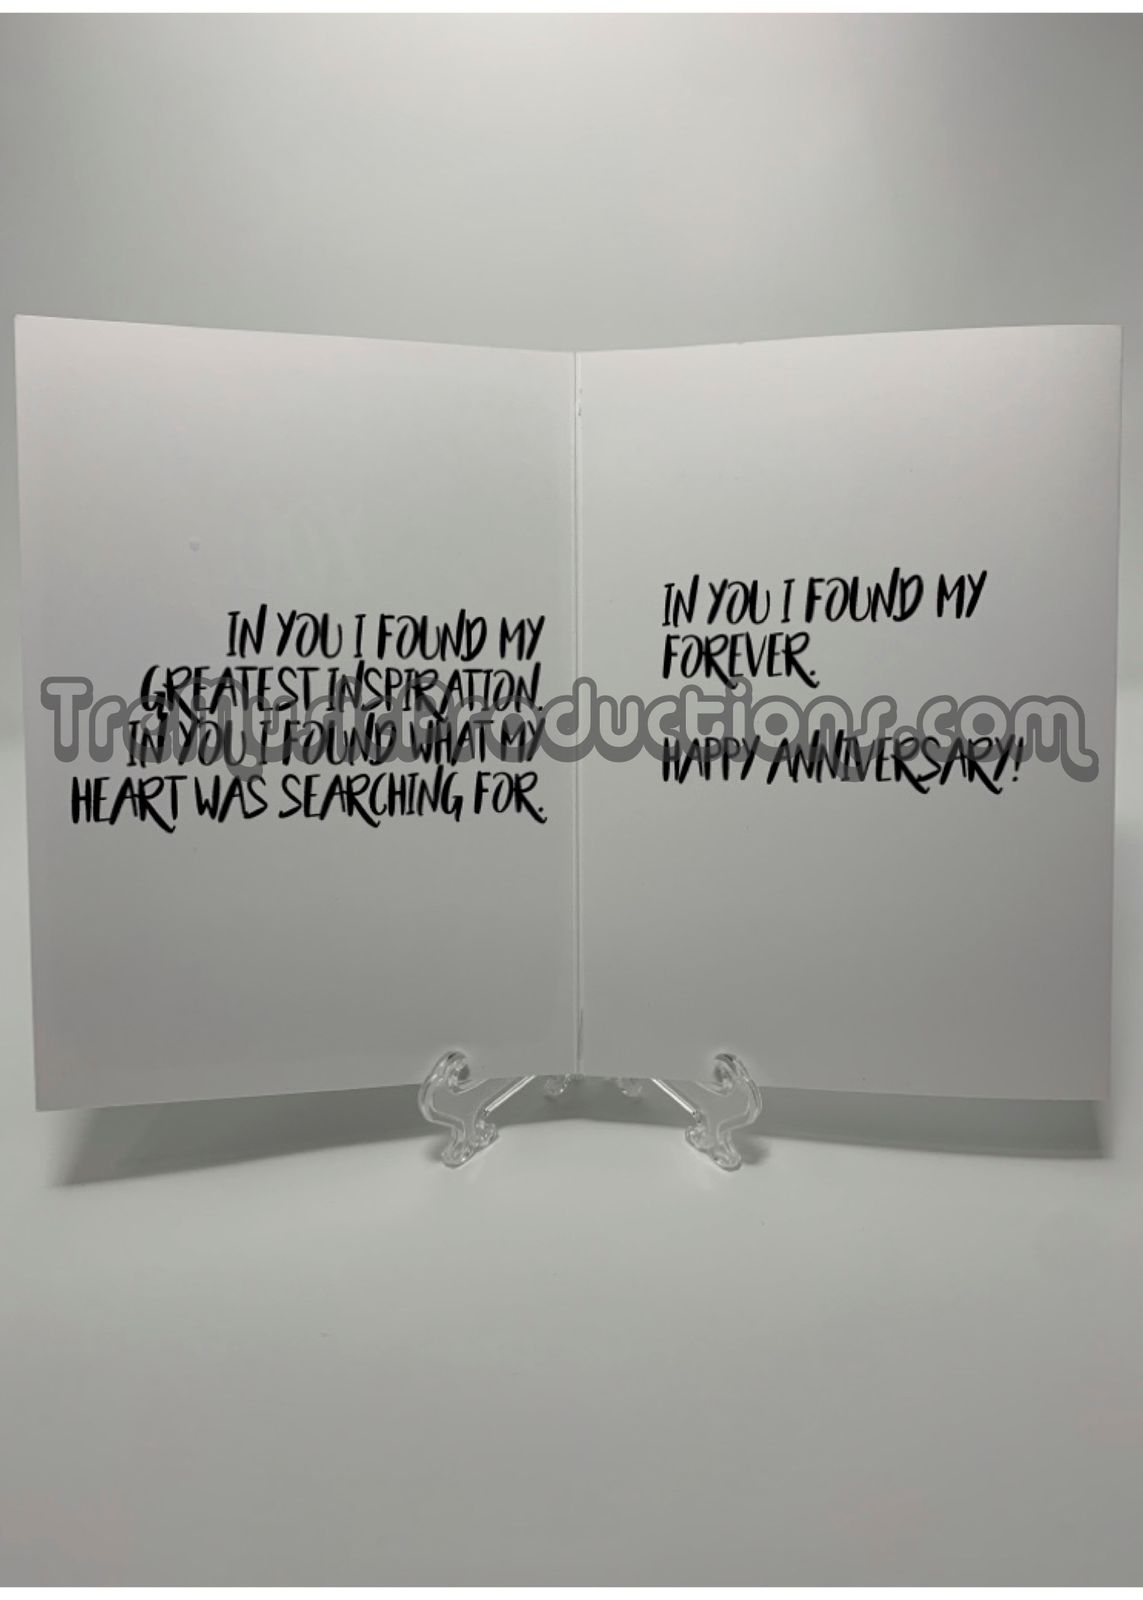 IN YOU I FOUND MY
GREATEST INSPIRATION.
IN YOU I FOUND WHAT MY
HEART WAS SEARCHING FOR.
IN YOU I FOUND MY
FOREVER.
HAPPY ANNIVERSARY!